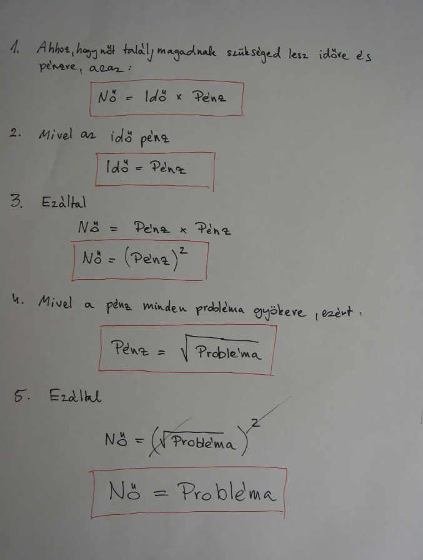 1. Ahhoz, hogy nőt találj magadnak szükséged lesz időre és
pénzre, azaz:
Nő = Idő × Pénz
2. Mivel az idő pénz
Idő = Pénz
3. Ezáltal
Nő = Pénz × Pénz
Nő = (Pénz)²
4. Mivel a pénz minden probléma gyökere, ezért.
Pénz = √Probléma
5. Ezáltal
Nő = (√Probléma)²
Nő = Probléma